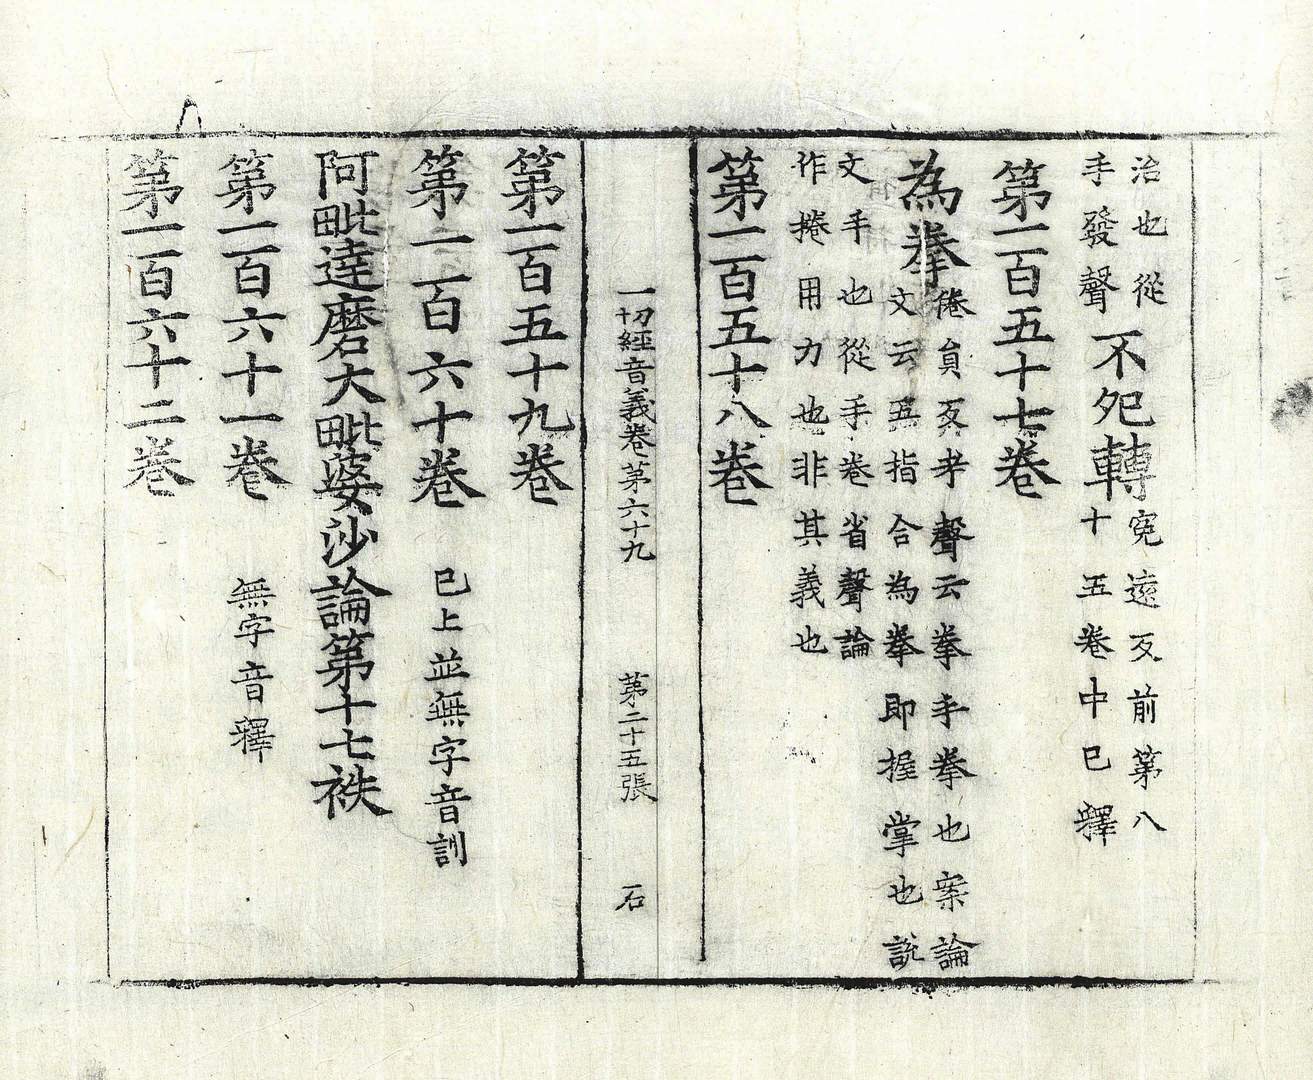 治也從
手發聲
不㔾轉
寃遠反前第八
十五卷中已釋
第一百五十七卷
為拳
倦員反考聲云拳手拳也案論
文云五指合為拳即握掌也說
文手也從手卷省聲論
作捲用力也非其義也
第一百五十八卷
一切經音義卷第六十九 第二十五張 石
第一百五十九卷
第一百六十卷 已上並無字音訓
阿毗達磨大毗婆沙論第十七袟
第一百六十一卷 無字音釋
第一百六十二卷